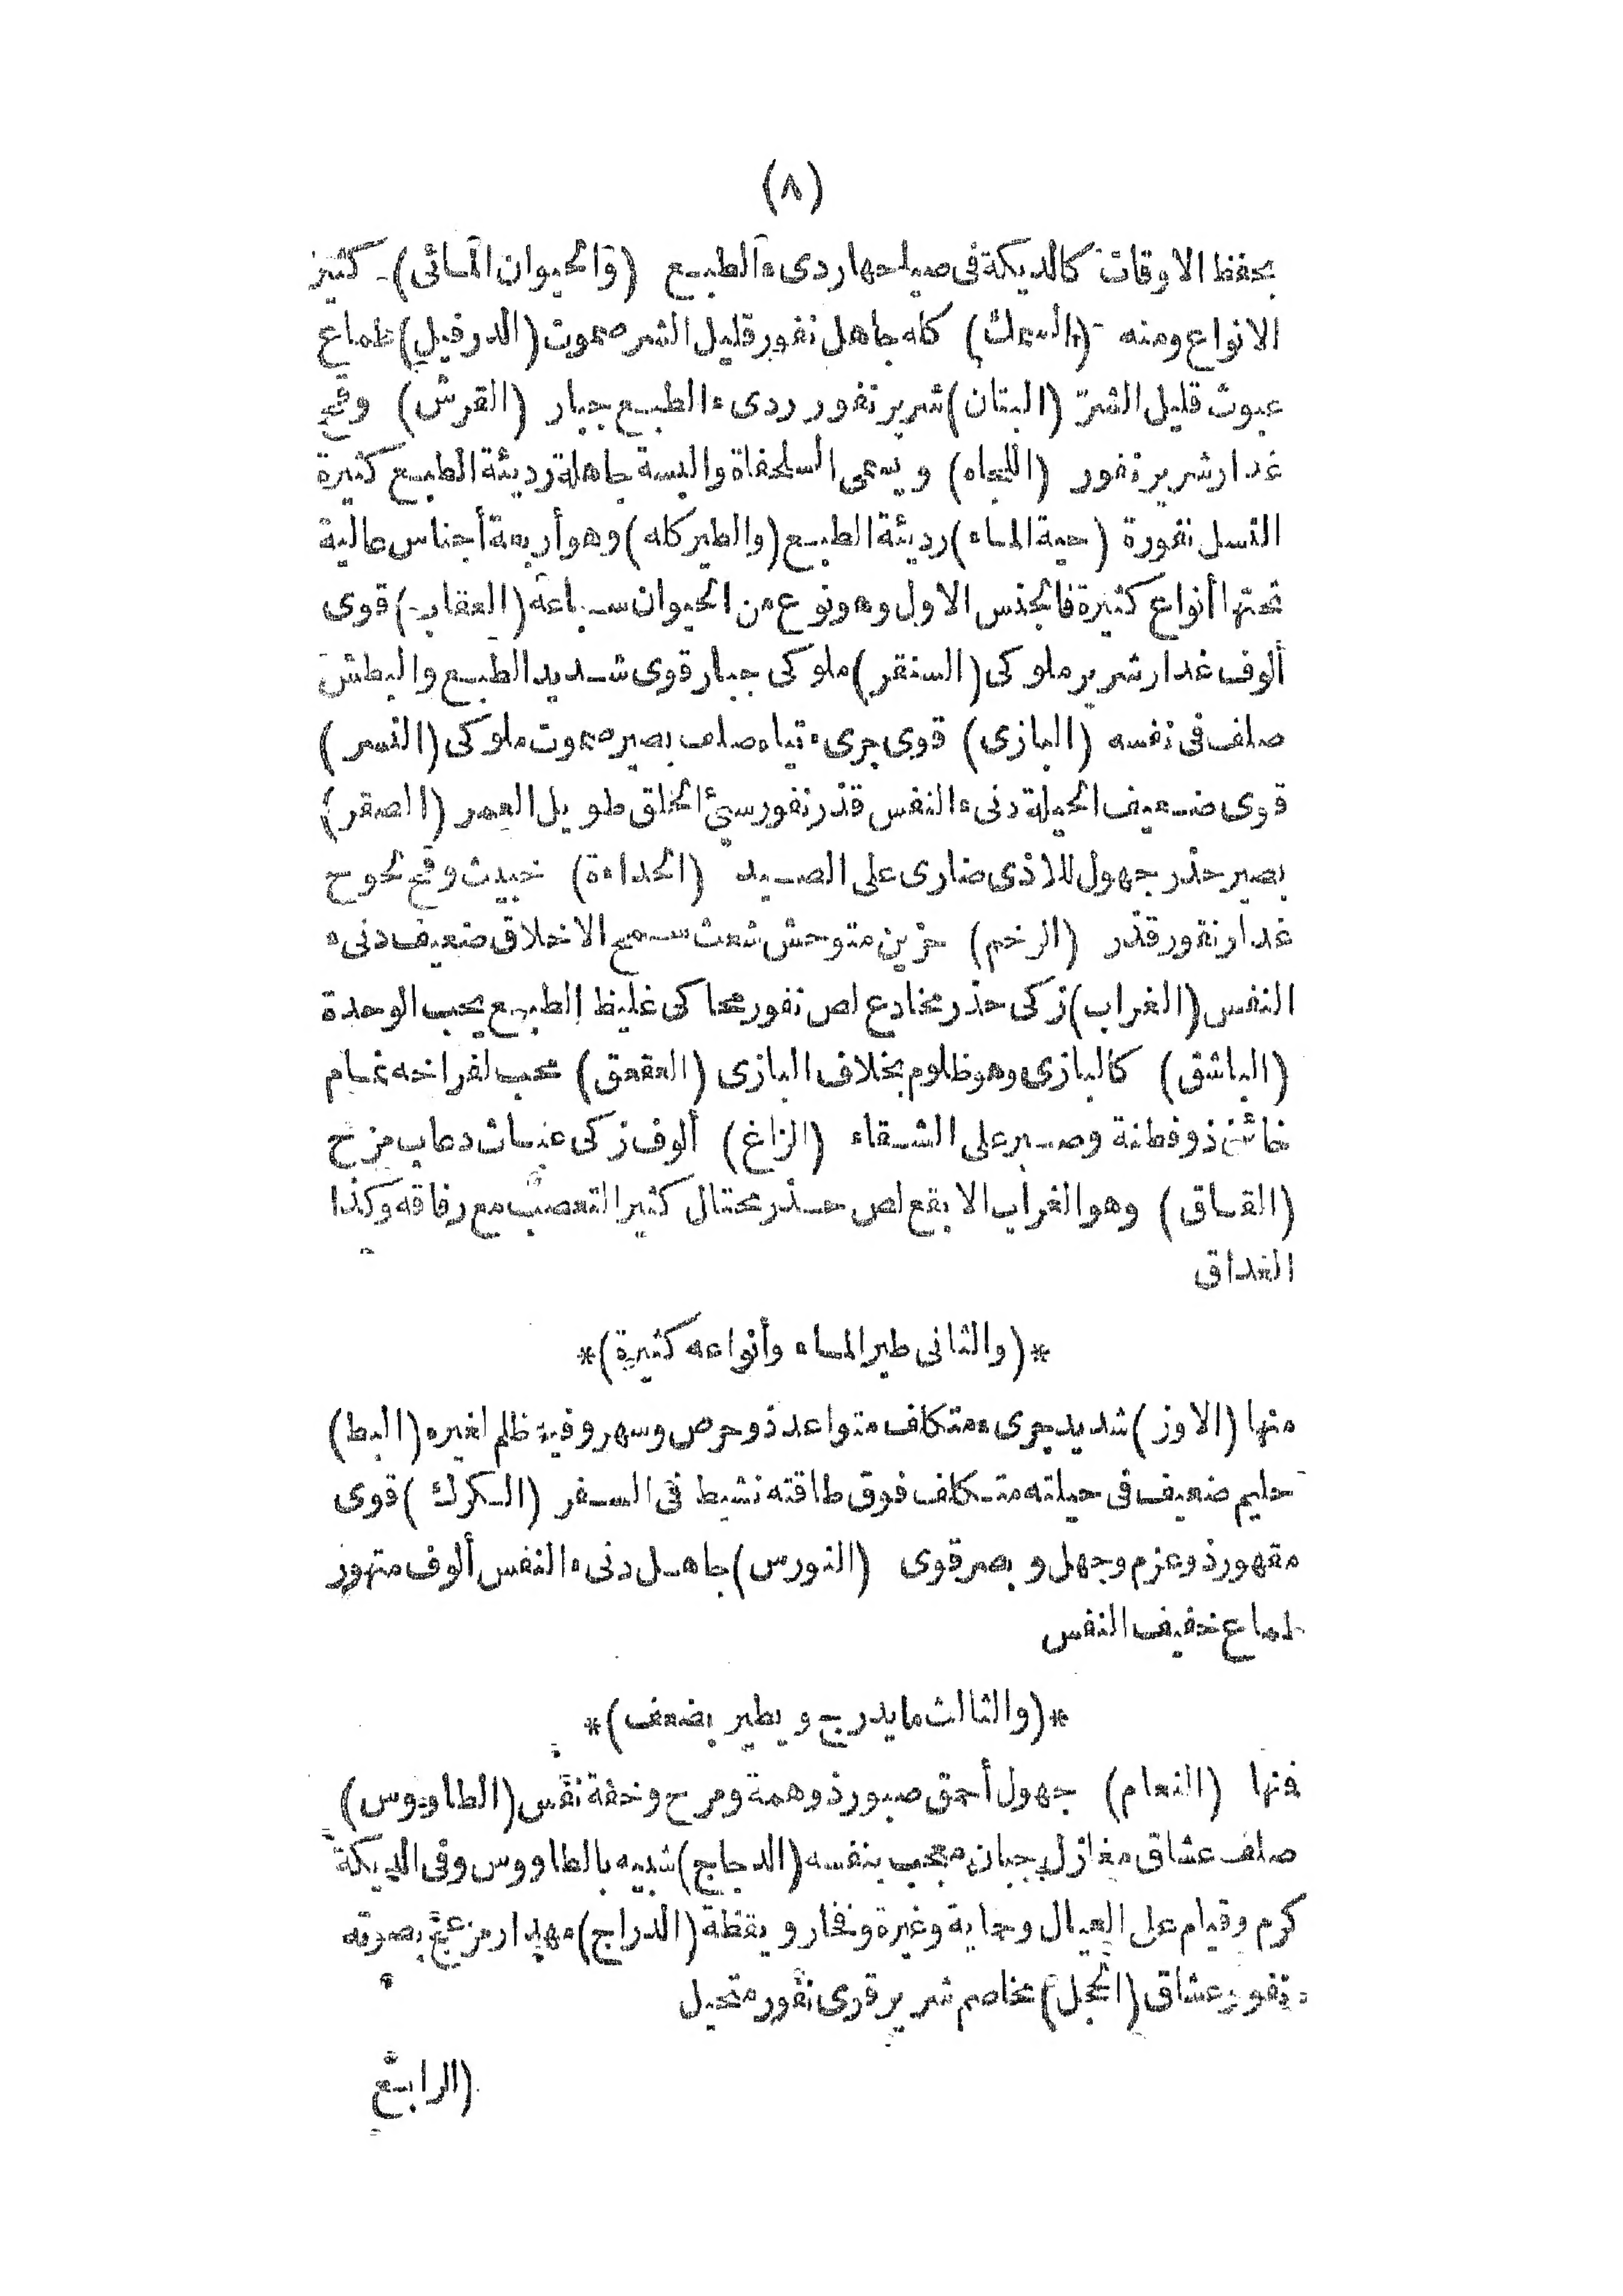 (٨)
بحفظ الاوقات كالديكة فى صياحها ردىء الطبع (والحيوان المائى) كثير
الانواع ومنه (السمك) كله جاهل نفور قليل الشر صموت (الدرفيل) طماع
عبوث قليل الشر (البتان) شرير نفور ردىء الطبع جبار (القرش) وقح
غدار شرير نفور (اللجاه) ويسمى السلحفاة والبسة جاهلة رديئة الطبع كثيرة
النسل نفورة (حية الماء) رديئة الطبع (والطير كله) وهو أربعة أجناس عالية
تحتها أنواع كثيرة فالجنس الاول وهو نوع من الحيوان سباعه (العقاب) قوى
ألوف غدار شرير ملوكى (السنقر) ملوكى جبار قوى شديد الطبع والبطش
صلف فى نفسه (البازى) قوى جرىء تياه صلف بصير صموت ملوكى (النسر)
قوى ضعيف الحيلة دنىء النفس قذر نفور سيئ الخلق طويل العمر (الصقر)
بصير حذر جهول للاذى ضارى على الصيد (الحداءة) خبيث وقح لحوح
غدار نفور قذر (الرخم) حزين متوحش شعث سمج الاخلاق ضعيف دنىء
النفس (الغراب) زكى حذر مخادع لص نفور محاكى غليظ الطبع يحب الوحدة
(الباشق) كالبازى وهو ظلوم بخلاف البازى (العقعق) محب لفراخه نمام
خائن ذو فطنة وصبر على الشقاء (الزاغ) ألوف زكى عبات دعاب مزح
(القاق) وهو الغراب الابقع لص حذر محتال كثير التعصب مع رفاقه وكذا
الغداق
*(والثانى طير الماء وأنواعه كثيرة)*
منها (الاوز) شديد جرىء متكلف متواعد ذو حرص وسهر وفيه ظلم لغيره (البط)
حليم ضعيف فى حيلته متكلف فوق طاقته نشيط فى السفر (الكرك) قوى
مقهور ذو عزم وجهل وبصر قوى (النورس) جاهل دنىء النفس ألوف متهور
طماع خفيف النفس
*(والثالث ما يدرج ويطير بضعف)*
فنها (النعام) جهول أحمق صبور ذو همة ومرح وخفة نفس (الطاووس)
صلف عشاق مغازل جبان معجب بنفسه (الدجاج) شبيه بالطاووس وفى الديكة
كرم وقيام على العيال وحماية وغيرة وفخار ويقظة (الدراج) مهدار مزعج بصوته
نفور عشاق (الحجل) مخاصم شرير قوى نفور متحيل
(الرابع